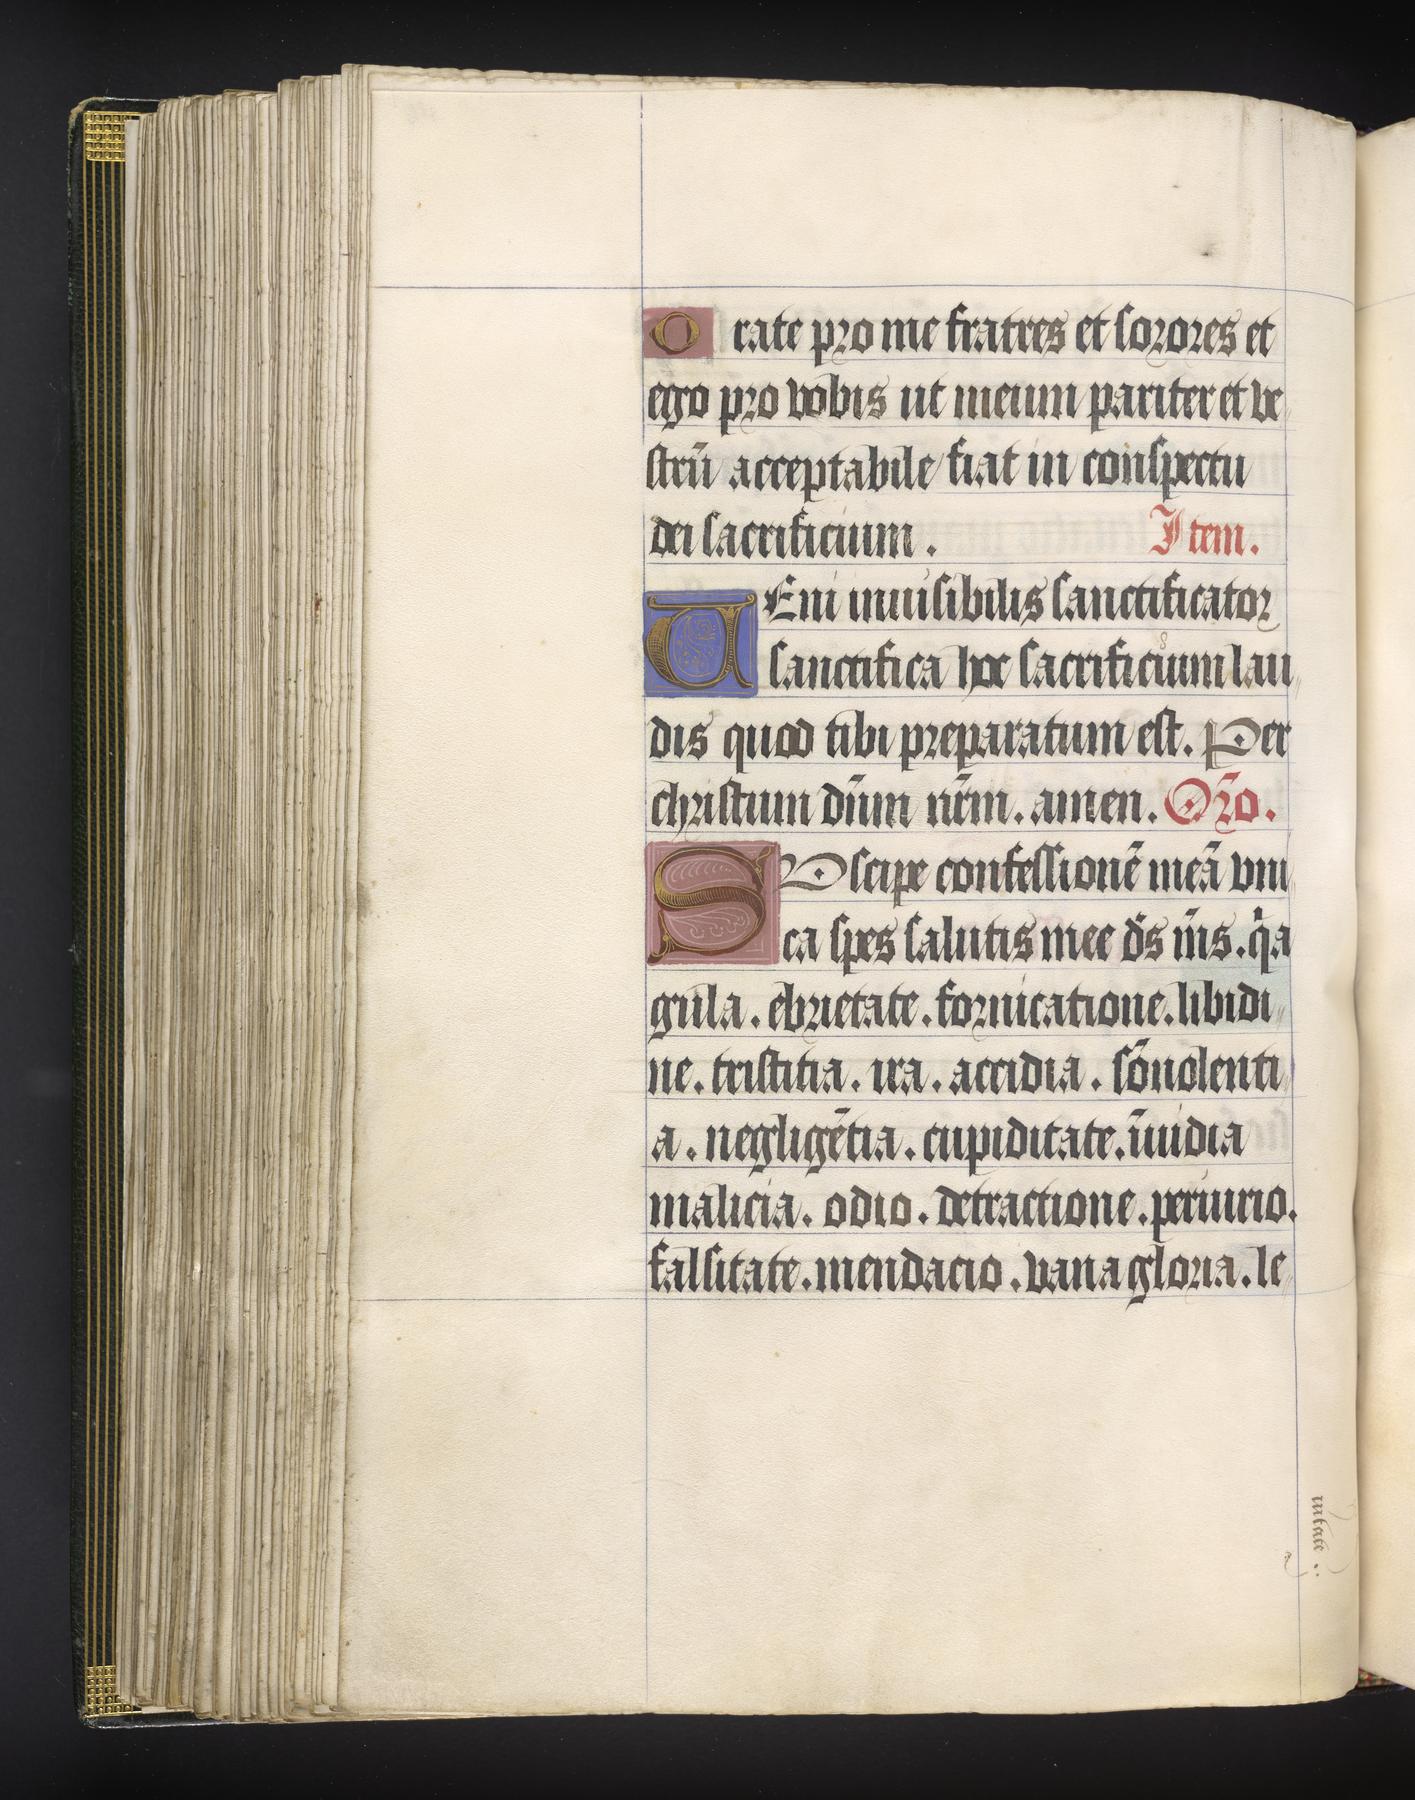 Orate pro me fratres et sorores et
ego pro vobis ut meum pariter et ve
strū acceptabile fiat in conspectu
dei sacrificium. Item.
VEni inuisibilis sanctificator
sanctifica hoc sacrificium lau
dis quod tibi preparatum est. Per
christum dn̄m nr̄m. amen. Or̄o.
SUscipe confessionē meā vni
ca spes salutis mee ds̄ ms̄. qa
gula. ebrietate. fornicatione. libidi
ne. tristitia. ira. accidia. sōnolenti
a. negligētia. cupiditate. īuidia
malicia. odio. detractione. periurio.
falsitate. mendacio. vana gloria. le